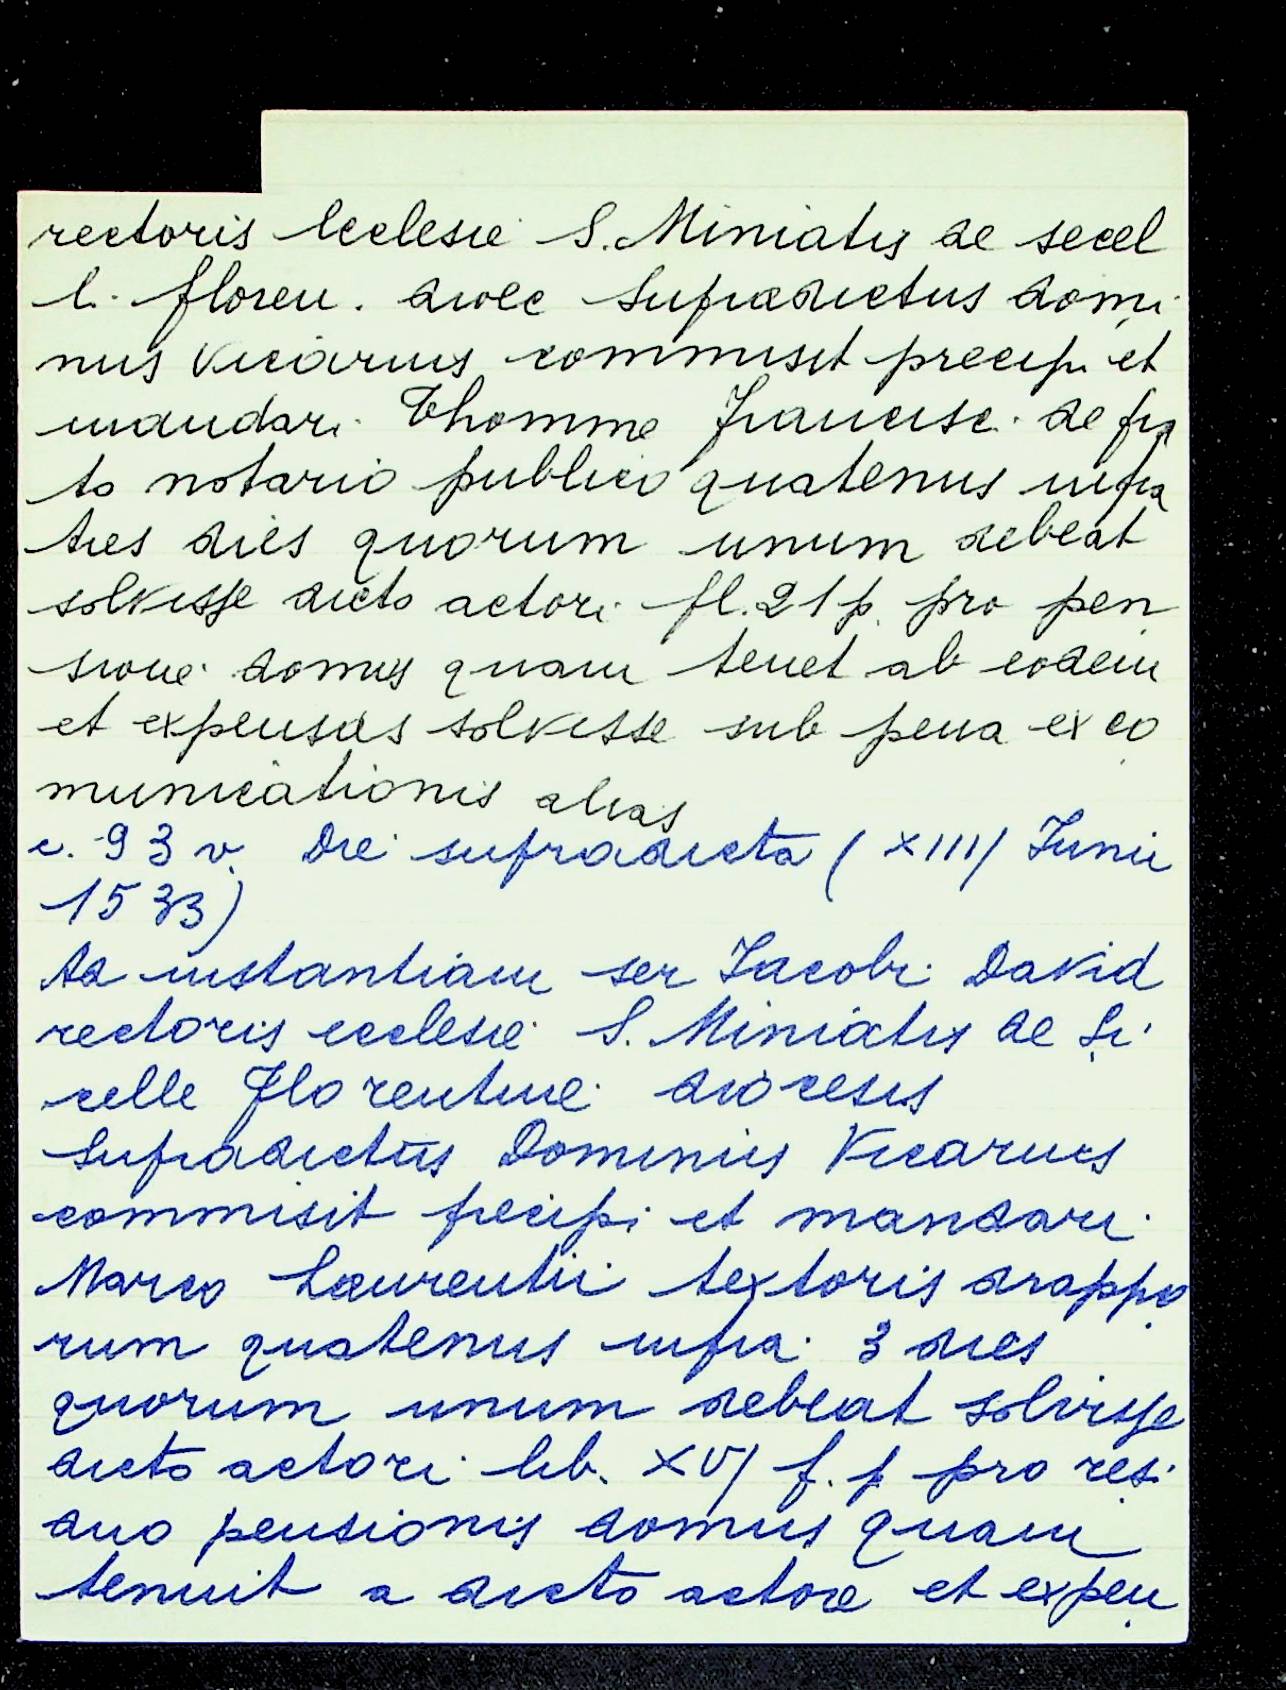 rectoris Ecclesie S. Miniatis de secel
l. floren. dioec Supradictus domi
nus Vicarius commisit precipi et
mandari Thomme Francisci de pra
to notario publico quatenus infra
tres dies quorum unum debeat
solvisse dicto actori fl. 21 p. pro pen
sione domus quam tenet ab eodem
et expensas solvisse sub pena exco
municationis alias
c. 93 v. Die supradicta (XIII/ Junii
1533)
Ad instantiam ser Jacobi David
rectoris ecclesie S. Miniatis de Si
celle Florentine diocesis
Supradictus Dominus Vicarius
commisit precipi et mandari
Marco Laurentii textoris drappo
rum quatenus infra 3 dies
quorum unum debeat solvisse
dicto actori lib. XV/ f. p pro resi
duo pensionis domus quam
tenuit a dicto actore et expen